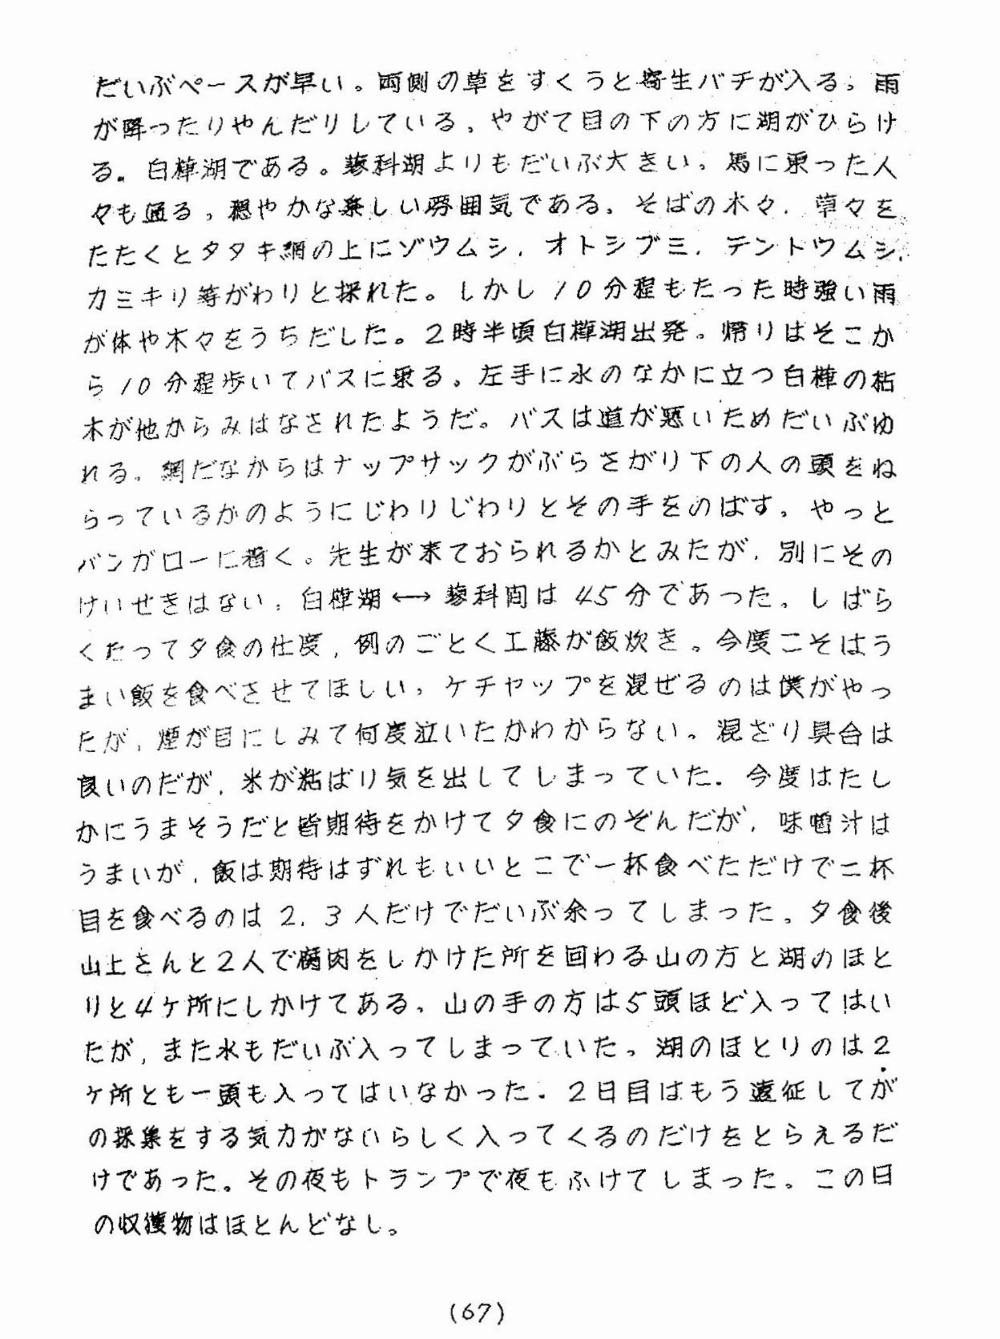 だいぶペースが早い。両側の草をすくうと寄生バチが入る。雨
が降ったりやんだりしている。やがて目の下の方に湖がひらけ
る。白樺湖である。蓼科湖よりもだいぶ大きい。馬に乗った人
々も通る。穏やかな楽しい雰囲気である。そばの木々、草々を
たたくとタタキ網の上にゾウムシ、オトシブミ、テントウムシ、
カミキリ等がわりと採れた。しかし10分程もたった時強い雨
が体や木々をうちだした。2時半頃白樺湖出発。帰りはそこか
ら10分程歩いてバスに乗る。左手に水のなかに立つ白樺の枯
木が他からみはなされたようだ。バスは道が悪いためだいぶゆ
れる。網だなからはナップサックがぶらさがり下の人の頭をね
らっているかのようにじわりじわりとその手をのばす。やっと
バンガローに着く。先生が来ておられるかとみたが、別にその
けいせきはない。白樺湖⟷蓼科間は45分であった。しばら
くたって夕食の仕度、例のごとく工藤が飯炊き。今度こそはう
まい飯を食べさせてほしい。ケチャップを混ぜるのは僕がやっ
たが、煙が目にしみて何度泣いたかわからない。混ざり具合は
良いのだが、米が粘ばり気を出してしまっていた。今度はたし
かにうまそうだと皆期待をかけて夕食にのぞんだが、味噌汁は
うまいが、飯は期待はずれもいいとこで一杯食べただけで二杯
目を食べるのは2、3人だけでだいぶ余ってしまった。夕食後
山上さんと2人で腐肉をしかけた所を回わる山の方と湖のほと
りと4ケ所にしかけてある。山の手の方は5頭ほど入ってはい
たが、また水もだいぶ入ってしまっていた。湖のほとりのは2
ケ所とも一頭も入ってはいなかった。2日目はもう遠征してが
の採集をする気力がないらしく入ってくるのだけをとらえるだ
けであった。その夜もトランプで夜もふけてしまった。この日
の収獲物はほとんどなし。
(67)